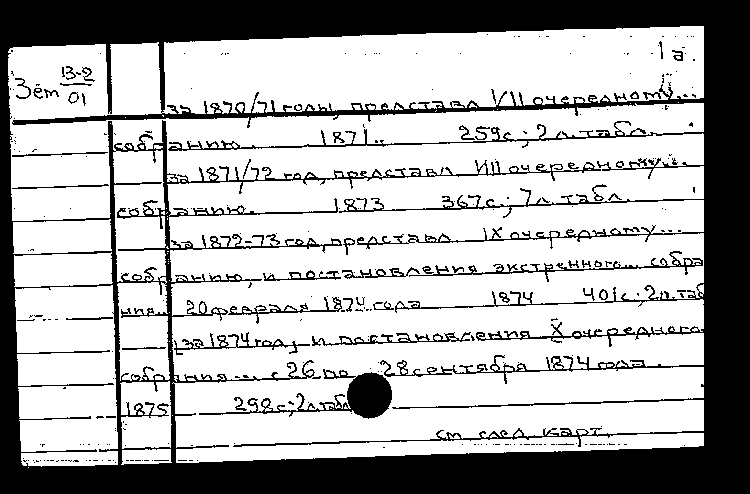 1а.
Зем 13-2/01
за 1870/71 годы, представл VII очередному...
собранию. 1871.. 259с; 2л. табл.
за 1871/72 год, представл VIII очередному...
собранию. 1873 367с; 7л. табл.
за 1872-73 год, представл. IX очередному...
собранию, и постановления экстренного... собра
ния.. 20 февраля 1874 года 1874 401с; 2л. таб
[за 1874 год,] и постановления X очередного
собрания... с 26 по 28 сентября 1874 года.
1875 298с; 2л табл
см след карт.